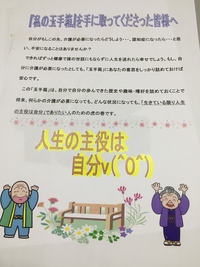 『私の玉手箱』を手に取ってくださった皆様へ
自分がもしこの先、介護が必要になったらどうしよう…、認知症になったら…と思
い、不安になることはありませんか？
できればずっと健康で誰の世話にもならずに人生を送れたら幸せでしょう。もし、自
分に介護が必要になったとしても、「玉手箱」にあなたの意思をしっかり詰めておけば
安心です。
この「玉手箱」は、自分で自分の歩んできた歴史や趣味・嗜好を詰めておくことで
将来、何らかの介護が必要になっても、どんな状況になっても、「生きている限り人生
の主役は自分でありたい」人のための虎の巻です。
人生の主役は
自分v(^0^)